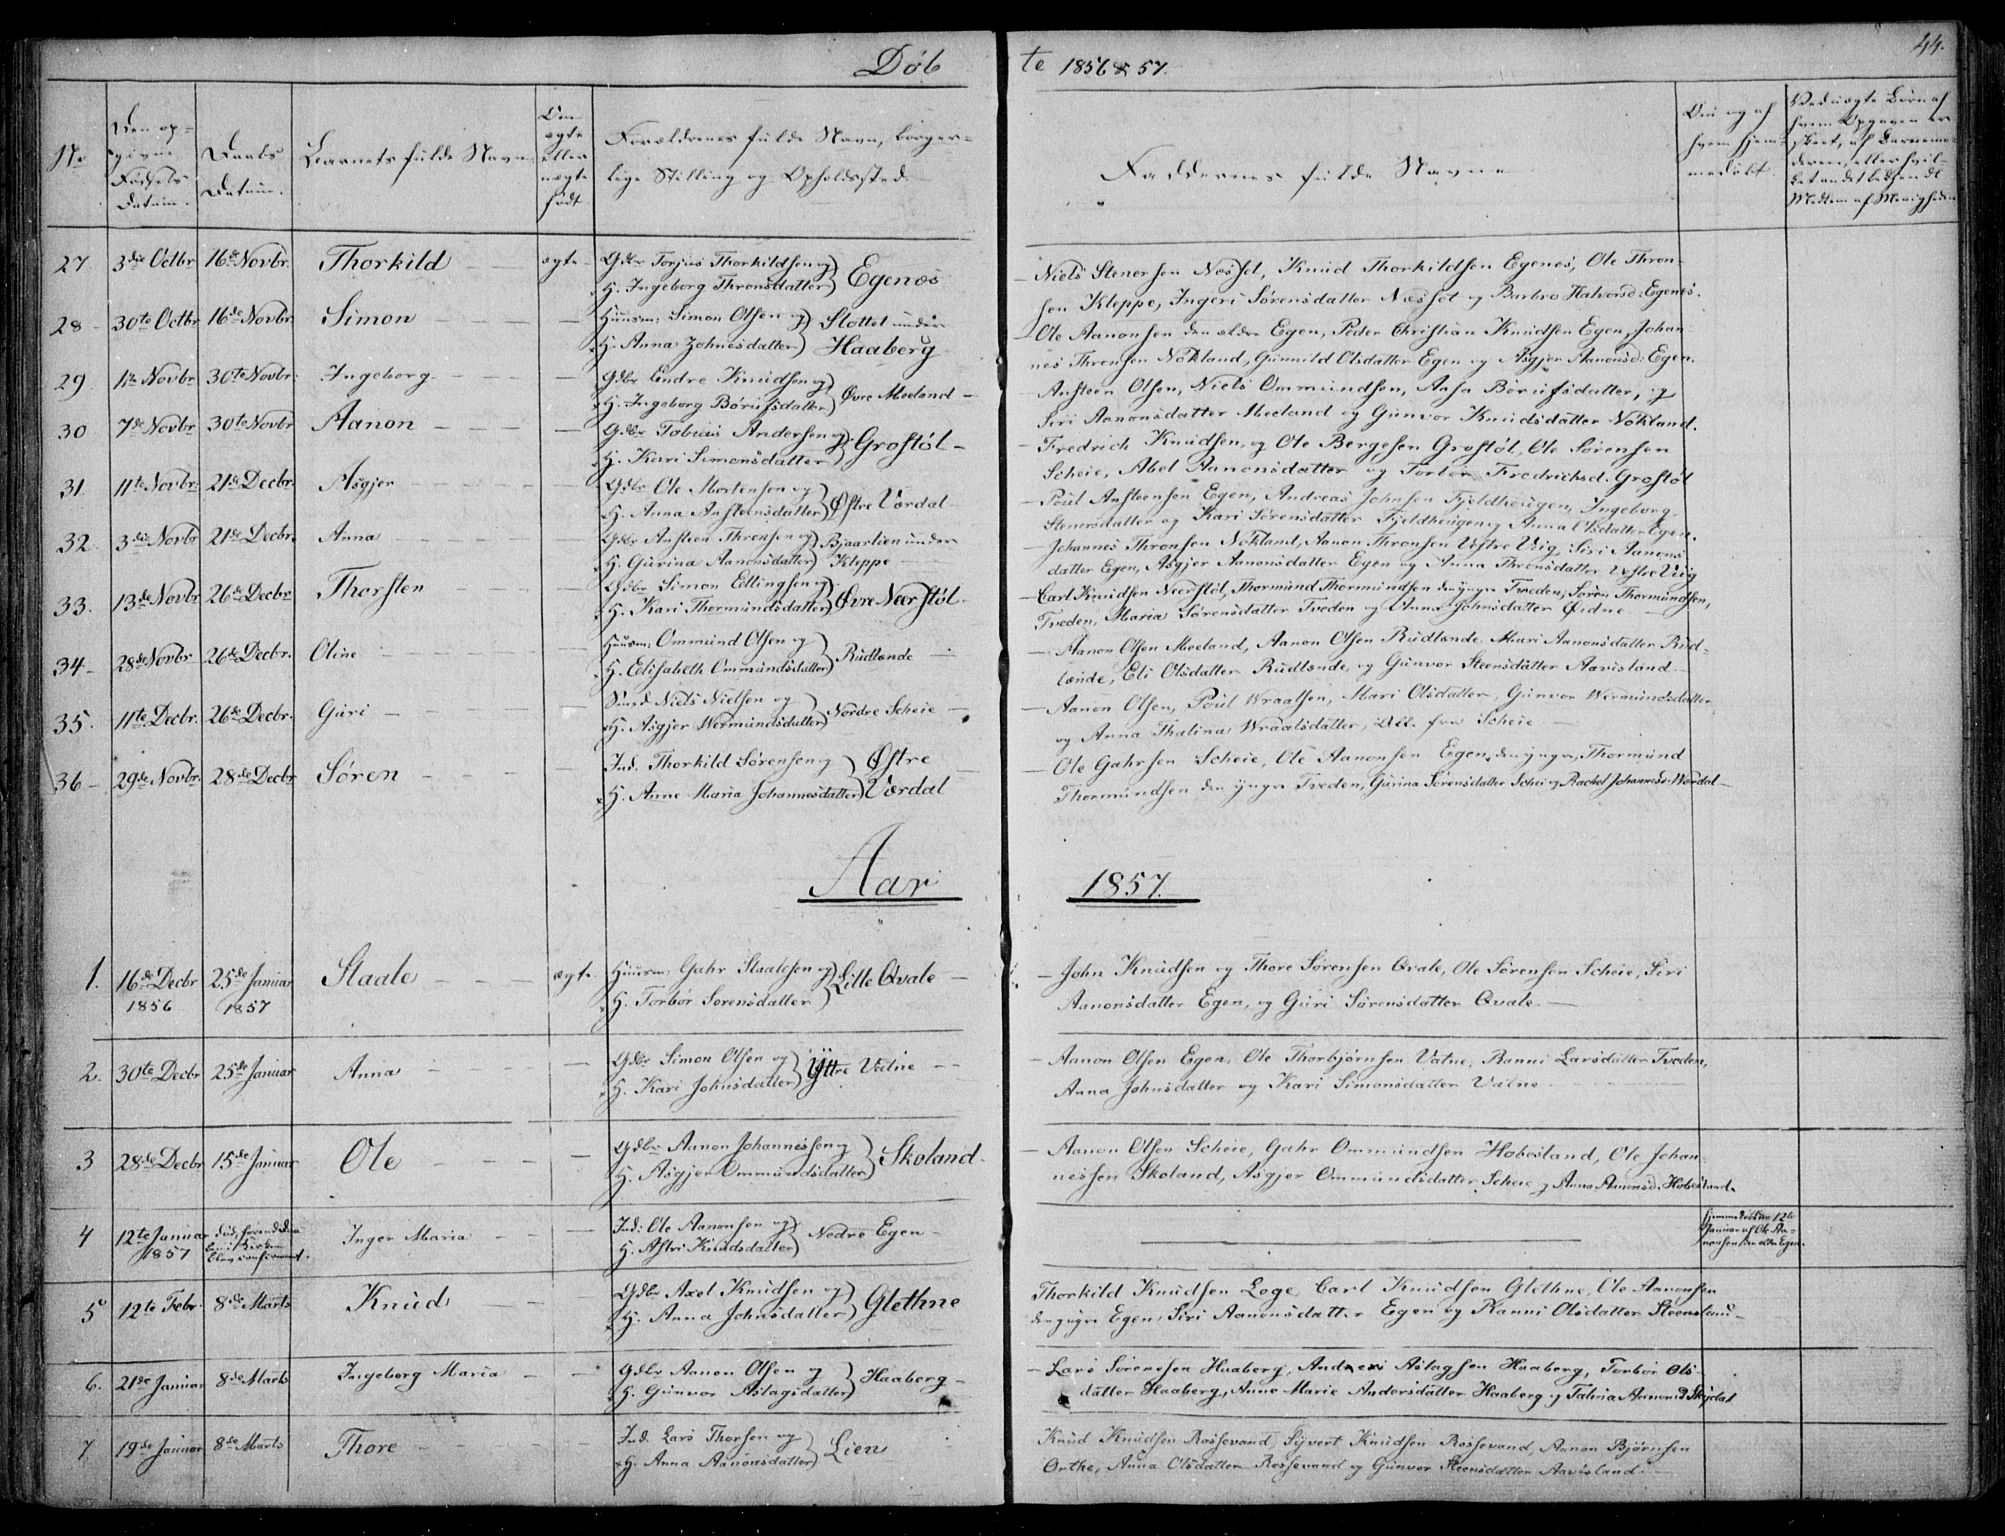 Døb
te 1856 & 57.
44.
No
Den op-
givne
Fødsels
Datum.
Daabs
Datum.
Barnets fulde Navn
Om
ægte
eller
uægte
født
Forældrenes fulde Navn, borger-
lige Stilling og Opholdssted
Faddernes fulde Navne
Om og af
hvem hjem-
medøbt
Ved uægte Børn af
27 3die Octbr 16de Novbr. Thorkild ægte Gdbr Torjus Thorkildsen og
H. Ingeborg Thronsdatter Egenes
Niels Stenersen Næsset, Knud Thorkildsen Egenes, Ole Thron-
sen Kleppe, Ingeri Sørensdatter Næsset og Barbro Halvorsd: Egenes.
28 30te Octbr 16de Novbr Simon Huusm: Simon Olsen og
H. Anna Johnesdatter Slottet under Haaberg
Ole Aanonsen den ældre Egen, Peder Christian Knudsen Egen, Johan
nes Thronsen Nökland, Gunnild Olsdatter Egen og Asgjer Aanonsd: Egen.
29 1ste Novbr 30te Novbr. Ingeborg Gdbr Endre Knudsen og
H. Ingeborg Børufsdatter Øvre Meeland
Ansteen Olsen, Niels Ommundsen, Aasa Børufsdatter, og
Siri Aanonsdatter Meeland og Gunvor Knudsdatter Nökland.
30 7de Novbr 30te Novbr Aanon Gdbr Tobias Andersen og
H. Kari Simonsdatter Grostøl
Fredrich Knudsen, og Ole Bergesen Grostøl, Ole Sørensen
Scheie, Abel Aanonsdatter og Torbor Fredrichsd. Grostøl
31 11te Novbr 21de Decbr. Asgjer Gdbr Ole Mortensen og
H. Anna Ansteensdatter Østre Værdal
Poul Ansteensen Egen, Andreas Johnsen Fjeldheigen, Ingeborg
Stenersdatter og Kari Sørensdatter Fjeldheigen og Anna Olsdatter Egen.
32. 3die Novbr 21de Decbr. Anna Gdbr Ansten Thronsen og
H. Gurina Aanonsdatter Bjaarlien under Kleppe
Johannes Thronsen Nökland, Aanon Thronsen Vestre Viig, Siri Aanons
datter Egen, Asgjer Aanonsdatter Egen og Anna Thronsdatter Vestre Viig
33. 13de Novbr 26de Decbr Thorsten Gdbr Simon Ellingsen og
H. Kari Thormundsdatter Øvre Neerstøl.
Carl Knudsen Neerstøl, Thormund Thormundsen den yngre Tveden, Søren Thormundsen,
Tveden, Maria Sørensdatter Tveden og Anna Johnsdatter Øidne
34 28de Novbr 26de Decbr. Oline Huusm: Ommund Olsen og
H. Elisabeth Ommundsdatter Rudlende
Aanon Olsen Meeland, Aanon Olsen Rudlende, Mari Aanonsdatter Rud-
lende, Eli Olsdatter Rudlende, og Gunvor Steensdatter Aavesland
35. 11te Decbr. 26de Decbr. Guri Niels Nielsen og
H. Asgjer Wermundsdatter Nordre Scheie
Aanon Olsen, Poul Wraalsen, Mari Olsdatter, Gunvor Wermundsdatter
og Anna Thalina Wraalsdatter, Alle fra Scheie
36 29de Novbr. 28de Decbr Søren Ind. Thorkild Sørensen og
H. Anne Maria Johannesdatter Østre Værdal
Ole Gahrsen Scheie, Ole Aanonsen Egen, den yngre, Thormund
Thormundsen den yngre Tveden, Gurina Sørensdatter Schei og Rachel Johannesd. Wærdal
Aar 1857.
1. 16de Decbr 1856 25de Januar 1857 Staale ægte Huusm: Gahr Staalesen og
H. Torbor Sørensdatter Lille Qvale
John Knudsen og Thore Sørensen Qvale, Ole Sørensen Scheie, Siri
Aanonsdatter Egen, og Guri Sørensdatter Qvale.
2. 30te Decbr 25de Januar Anna Gdbr Simon Olsen og
H. Kari Johnsdatter Yttre Vatne
Aanon Olsen Egen, Ole Thorbjørnsen Vatne, Ranni Larsdatter Tveden,
Anna Johnsdatter og Kari Simonsdatter Vatne
3 28de Decbr 15de Januar Ole Gdbr Aanon Johannessen og
H. Asgjer Ommundsdatter Skoland
Aanon Olsen Scheie, Gahr Ommundsen Hobesland, Ole Johan-
nessen Skoland, Asgjer Ommundsdatter Scheie og Anna Aanonsd. Hobesland.
4 12te Januar 1857 Inger Maria Ind: Ole Aanonsen og
H. Astri Knudsdatter Nedre Egen
hjemmedøbt den 12te
Januar af Ole Aa-
nonsen den ældre Egen.
5 12te Febr. 8de Marts Knud Gdbr Axel Knudsen og
H. Anna Johnsdatter Glethne
Thorkild Knudsen Loge, Carl Knudsen Glethne, Ole Aanonsen
den yngre Egen, Siri Aanonsdatter Egen og Ranni Olsdatter Steensland
6. 21de Januar 8de Marts Ingeborg Maria Gdbr Aanon Olsen og
H. Gunvor Aslagsdatter Haaberg
Lars Sørensen Haaberg, Andreas Aslagsen Haaberg, Torbor Ols-
datter Haaberg, Anne Marie Andersdatter Haaberg og
7 19de Januar 8de Marts Thore Ind. Lars Thorsen og
H. Anna Aanonsdatter Lien
Knud Knudsen Rossevand, Syvert Knudsen Rossevand, Aanon Bjørnsen
Orthe, Anna Olsdatter Rossevand og Gunvor Steensdatter Aavesland.